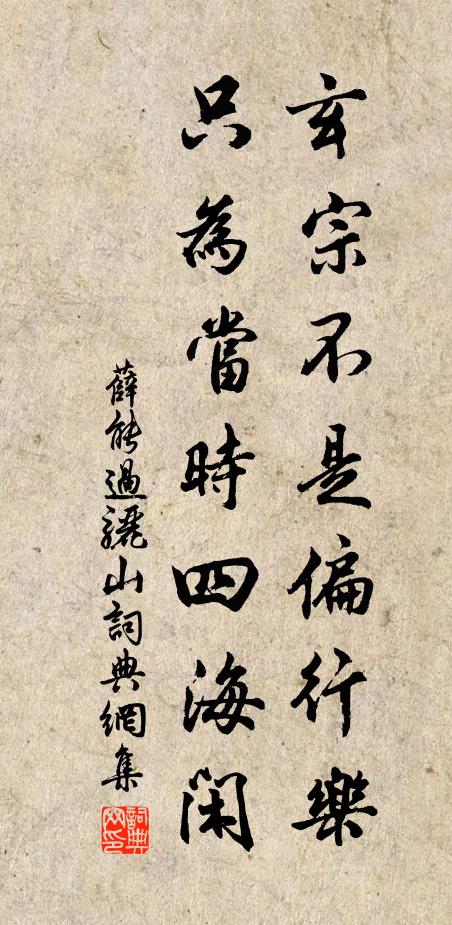 玄宗不是偏行樂
只為當時四海閑
薛能過驪山詞典網集
詞典網印